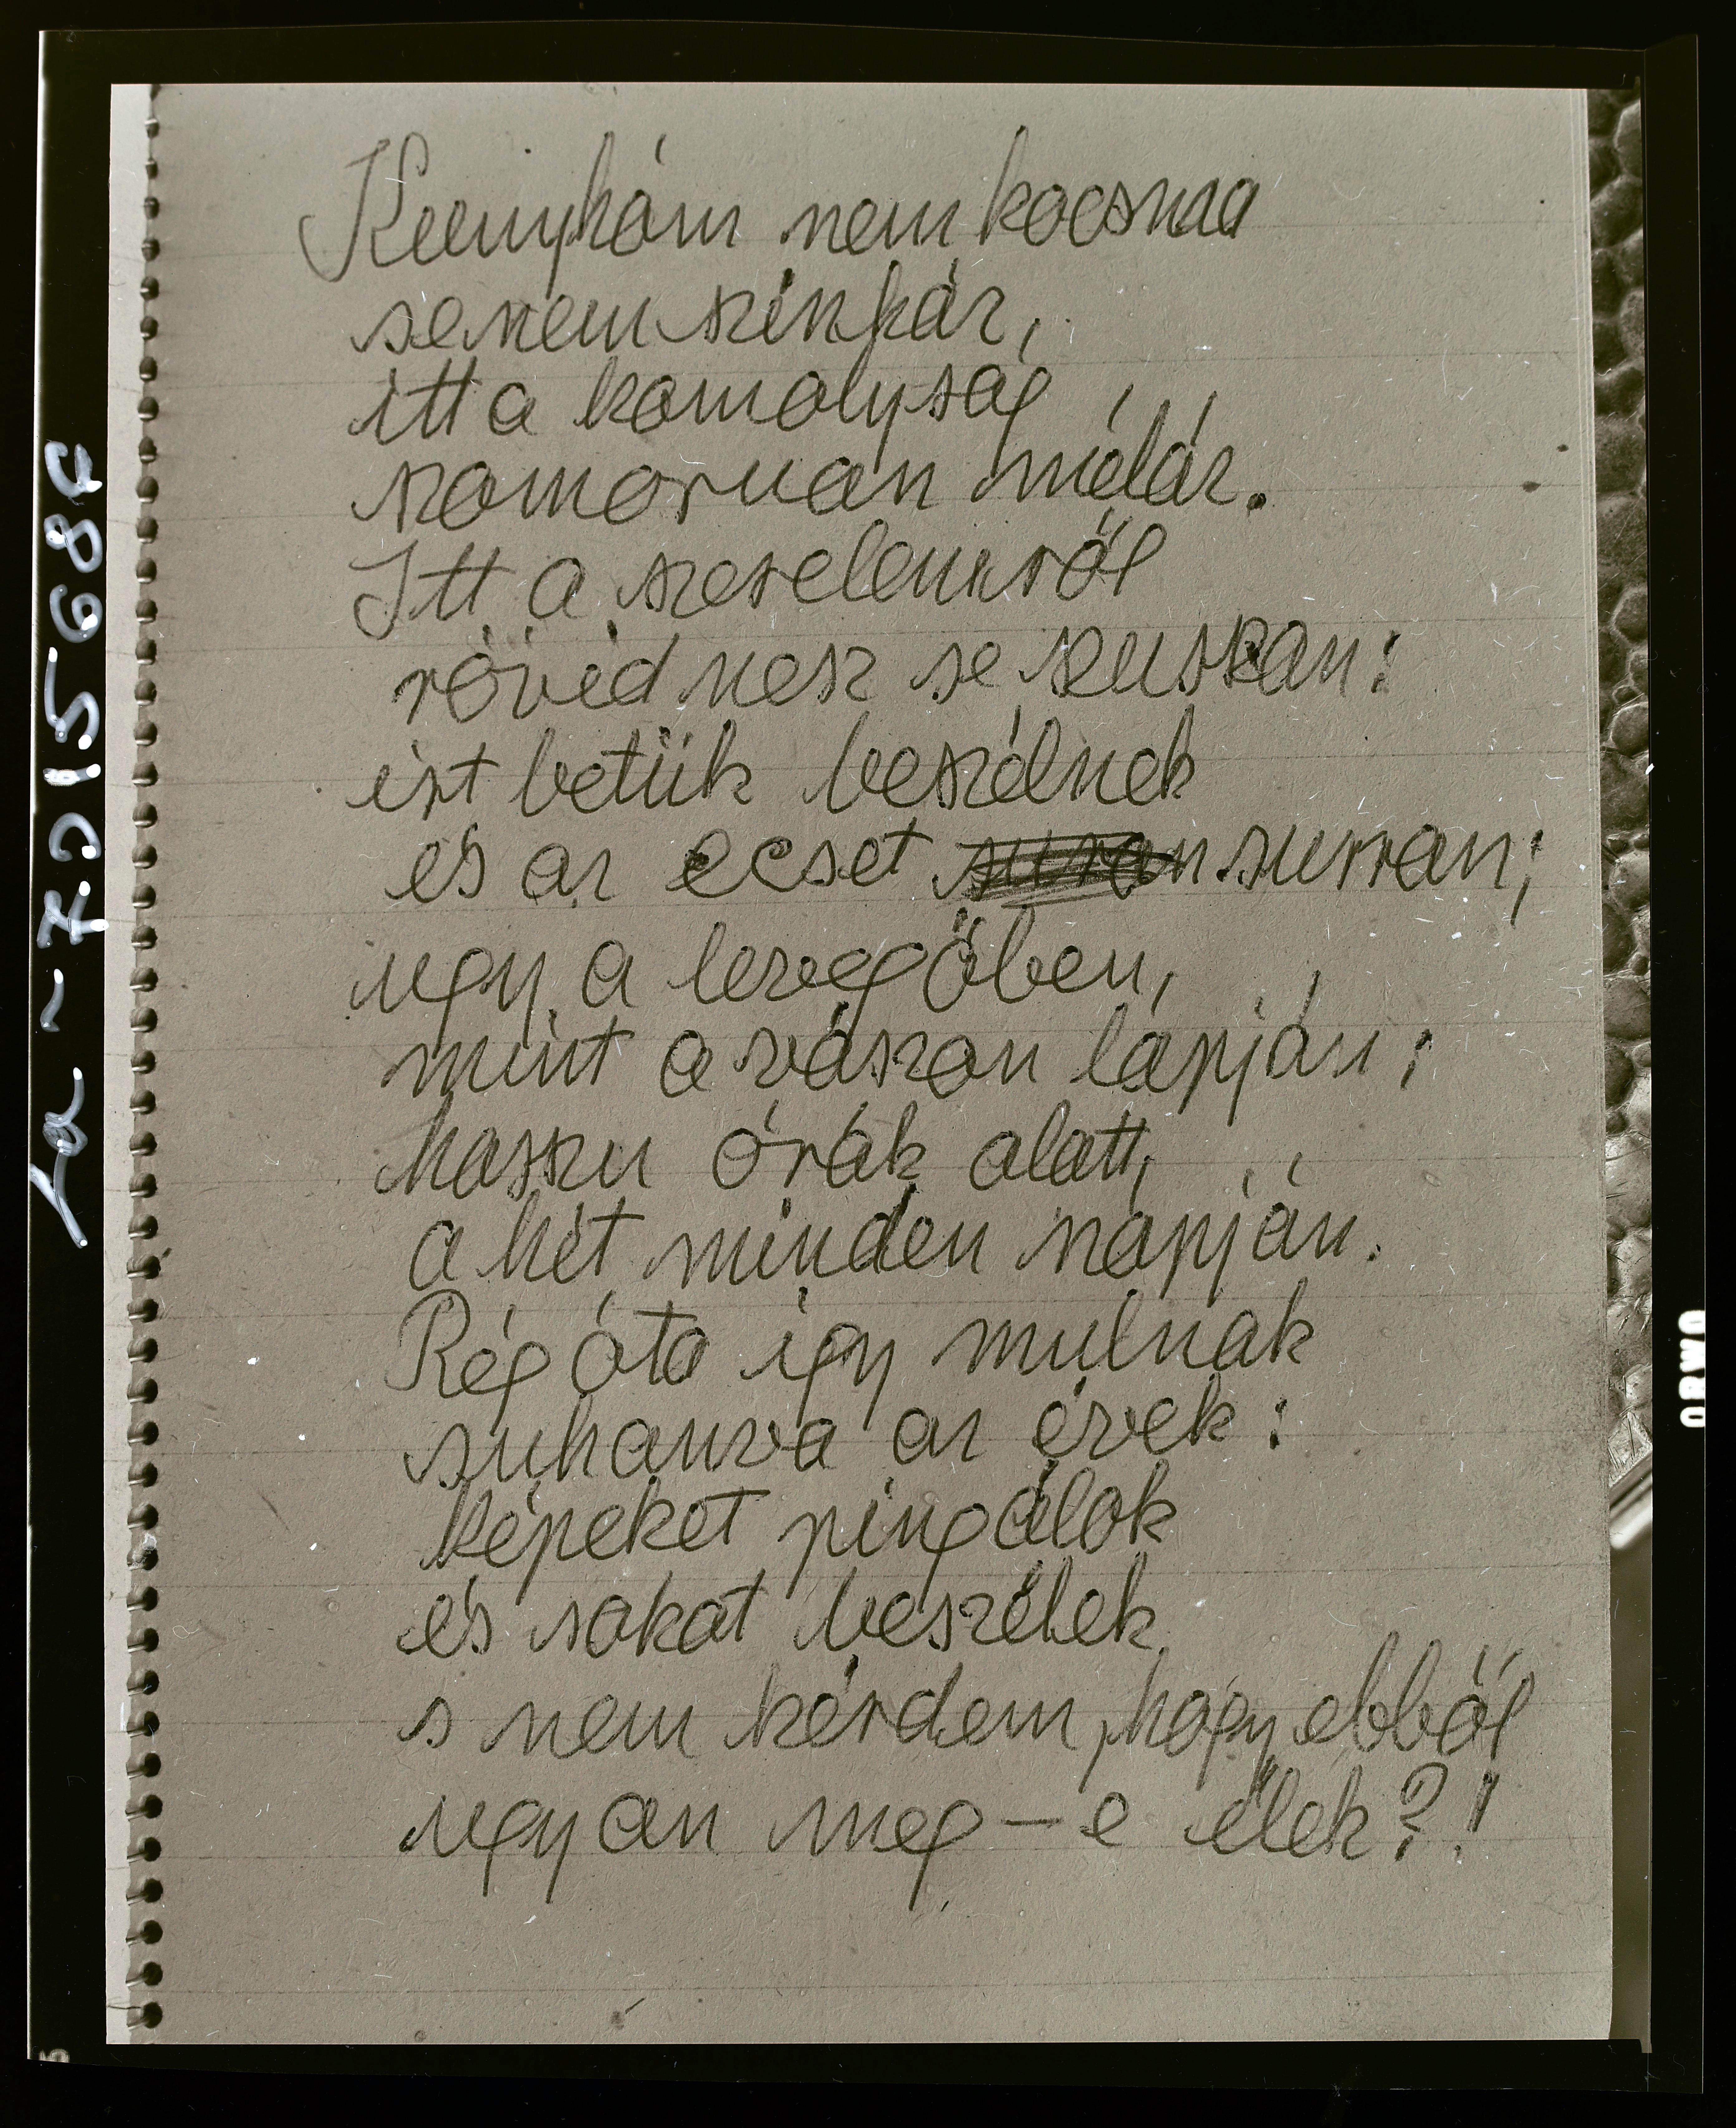 Kunyhóm nem kocsma
se nem szinház,
itt a komolyság
szomoruan méláz.
Itt a szerelemről
rövid nesz se zuzzan:
itt betük beszélnek
és az ecset surran;
ugy a levegőben,
mint a vászon lapján;
hosszu órák alatt,
a hét minden napján.
Rég óta igy mulnak
suhanva az évek:
képeket pingálok
és sokat beszélek
s nem kérdem, hogy ebből
ugyan meg-e élek?!
ORWO